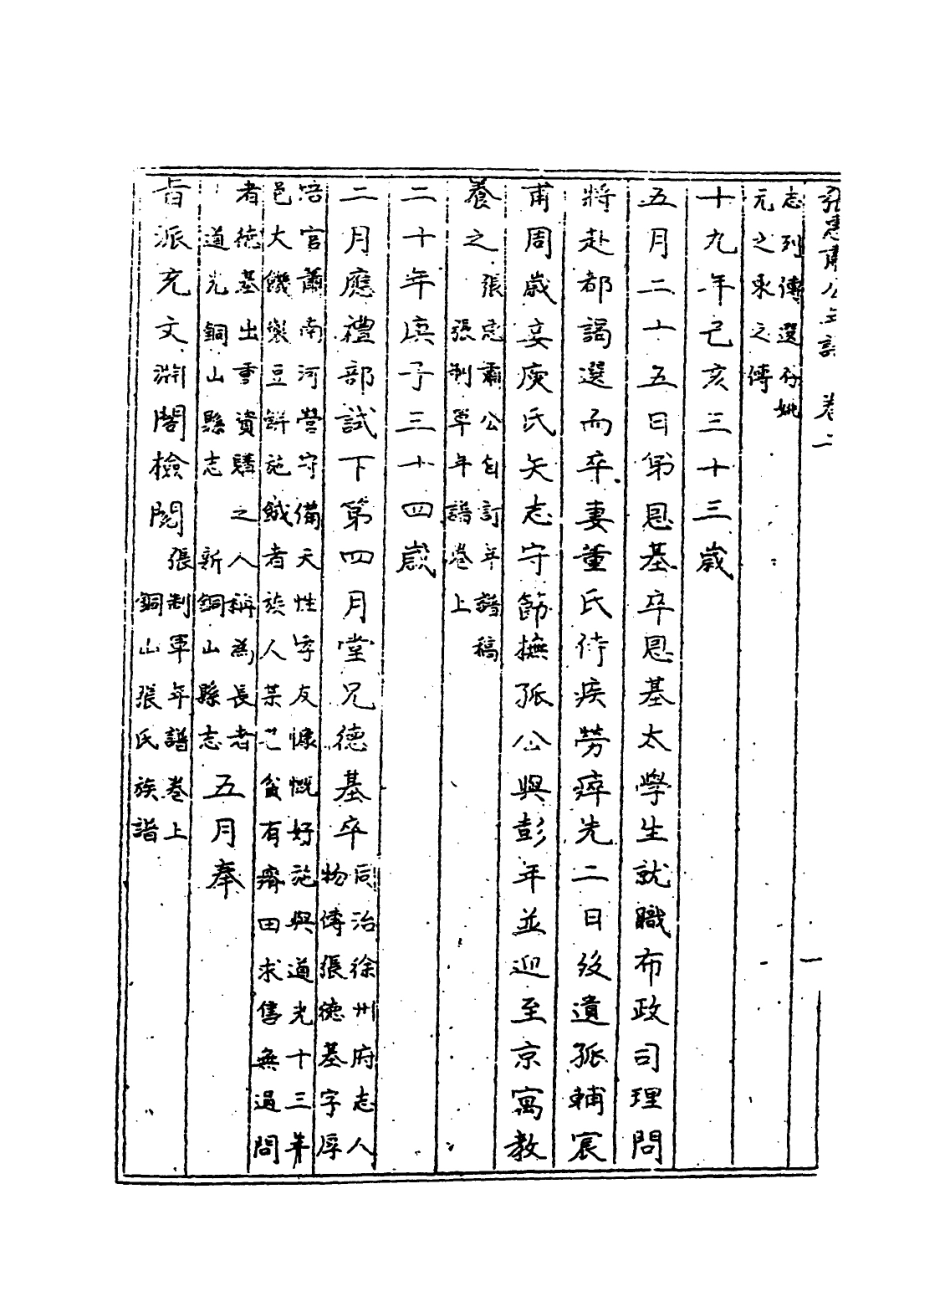 志列傳選
元之承之傳
十九年己亥三十三歲
五月二十五日弟恩基卒恩基太學生就職布政司理問
將赴都謁選而卒妻董氏侍疾勞瘁先二日歿遺孤輔宸
甫周歲妾庾氏矢志守節撫孤公與彭年並迎至京寓教
養之 張忠肅公自訂年譜稿
張制軍年譜卷上
二十年庚子三十四歲
二月應禮部試下第四月堂兄德基卒 同治徐州府志人
物傳張德基字厚
培官蕭南河營守備天性孝友慷慨好施與道光十三年
邑大饑製豆餅施餓者族人某乙貧有瘠田求售無過問
者德基出重資購之人稱為長者
道光銅山縣志 新銅山縣志 五月奉
旨派充文淵閣檢閱 張制軍年譜卷上
銅山張氏族譜